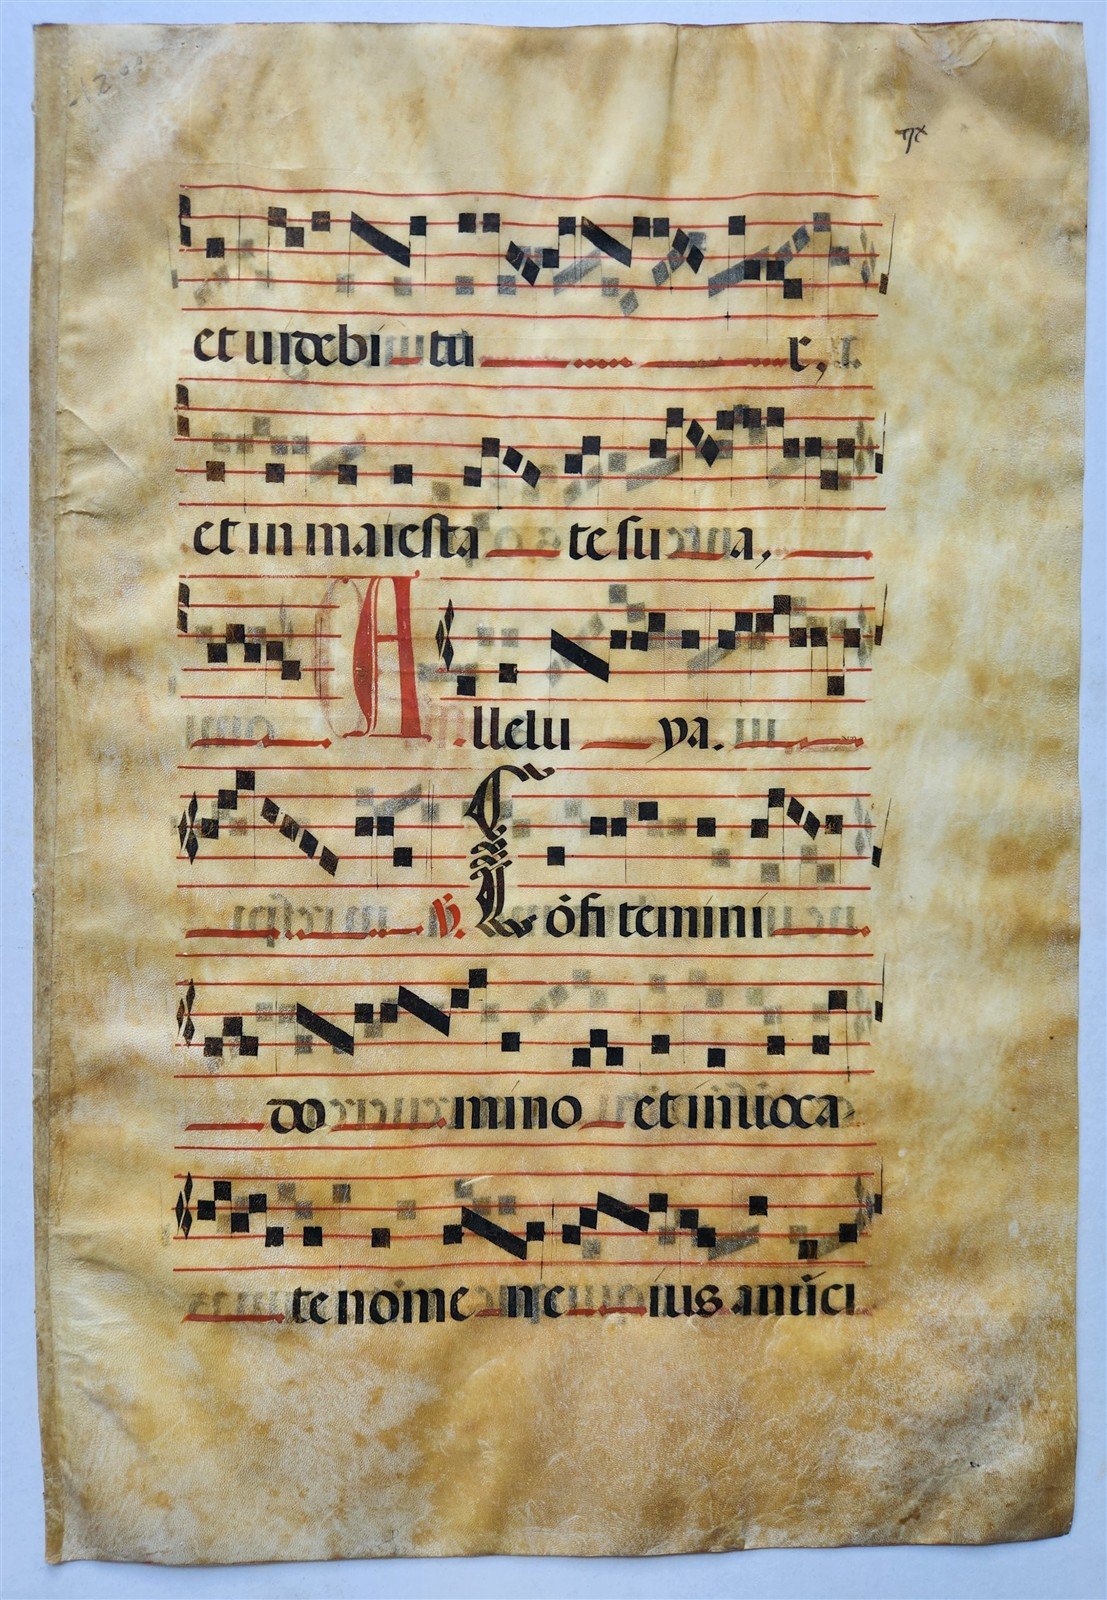 et uidebitu r,
et in maiesta te su a,
Alleluya.
℣. Cōfitemini
domino et inuoca
te nomē ne ius annūci